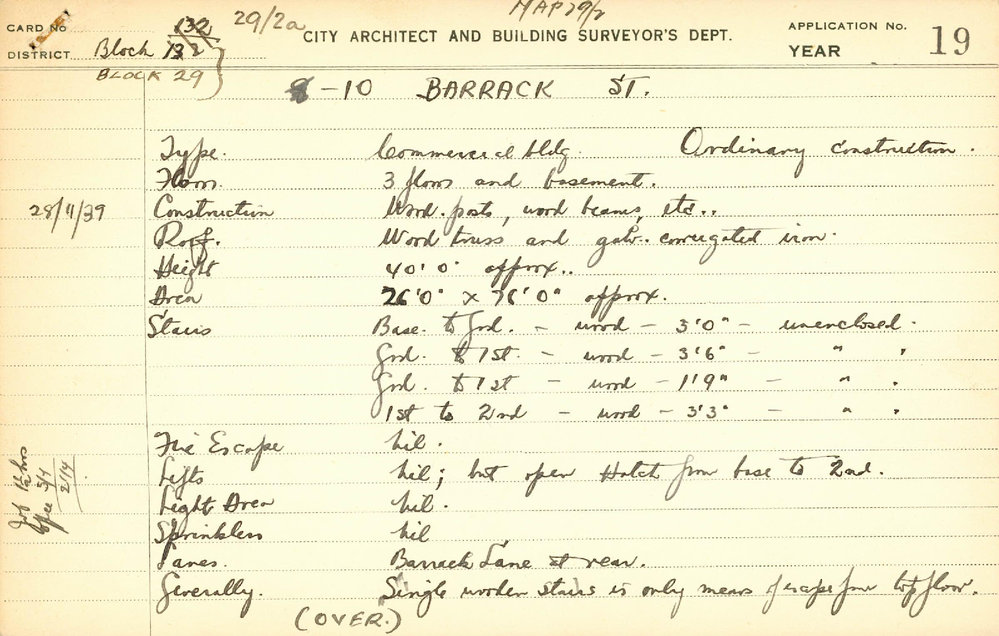 MAP 29/2
CARD No 132 29/2a CITY ARCHITECT AND BUILDING SURVEYOR'S DEPT. APPLICATION No.
DISTRICT Block 132 YEAR 19
BLOCK 29
-10 BARRACK ST.
Type. Commercial bldg. Ordinary construction.
Floors. 3 floors and basement.
28/11/39 Construction Wood. posts, wood beams, etc..
Roof. Wood truss and galv. corrugated iron.
Height 40'0" approx..
Area 26'0" x 76'0" approx.
Stairs Base. to Grd. - wood - 3'0" - unenclosed.
Grd. to 1st. - wood - 3'6" - " "
Grd. to 1st - wood - 1'9" - " "
1st to 2nd - wood - 3'3" - " "
Fire Escape Nil.
Lifts Nil; but open Hatch from base to 2nd.
Light Area Nil.
Sprinklers Nil
Lanes. Barrack Lane at rear.
Generally. Single wooden stairs is only means of escape from top floor.
(OVER.)
Job hrs